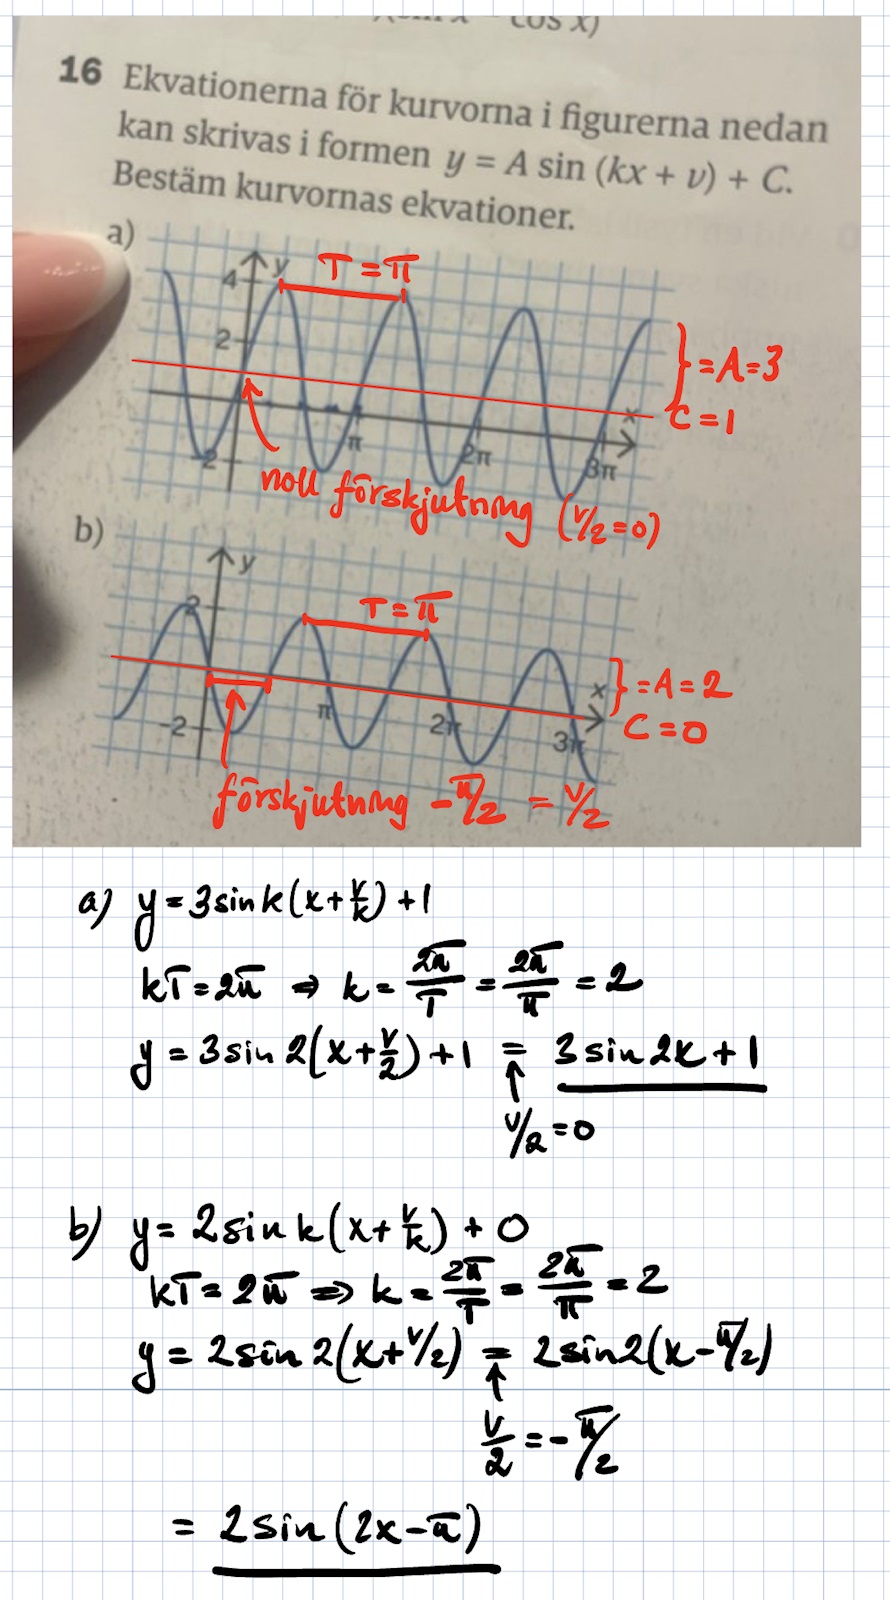 cos x)
16 Ekvationerna för kurvorna i figurerna nedan
kan skrivas i formen y = A sin (kx + v) + C.
Bestäm kurvornas ekvationer.
a)
y
4
T = π
2
} = A = 3
C = 1
x
π
2π
3π
-2
noll förskjutning (v/2 = 0)
b)
y
2
T = π
x
} = A = 2
C = 0
π
2π
3π
-2
förskjutning -π/2 = v/2
a) y = 3 sin k(x + v/k) + 1
kT = 2π ⇒ k = 2π/T = 2π/π = 2
y = 3 sin 2(x + v/2) + 1 = 3 sin 2x + 1
↑
v/2 = 0
b) y = 2 sin k(x + v/k) + 0
kT = 2π ⇒ k = 2π/T = 2π/π = 2
y = 2 sin 2(x + v/2) = 2 sin 2(x - π/2)
↑
v/2 = -π/2
= 2 sin (2x - π)